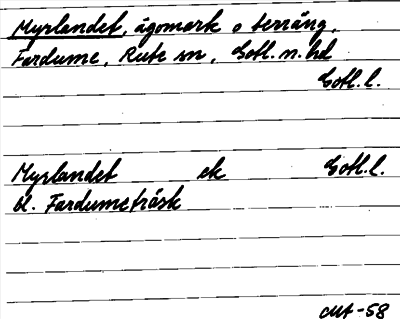 Myrlandet, ägomark o terräng,
Fardume, Rute sn, Gotl. n. hd
Gotl. l.
Myrlandet ek Gotl. l.
bl. Fardumeträsk
-58